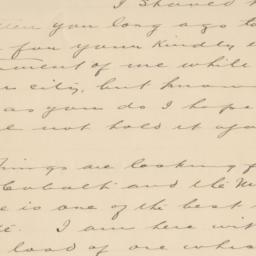 I should h
you long ago to
for your kindly
of me while
city, but know
as you do I hope
not hold it aga
things are looking f
Cobalt and the M
is one of the best
I am here wit
load of ore whic